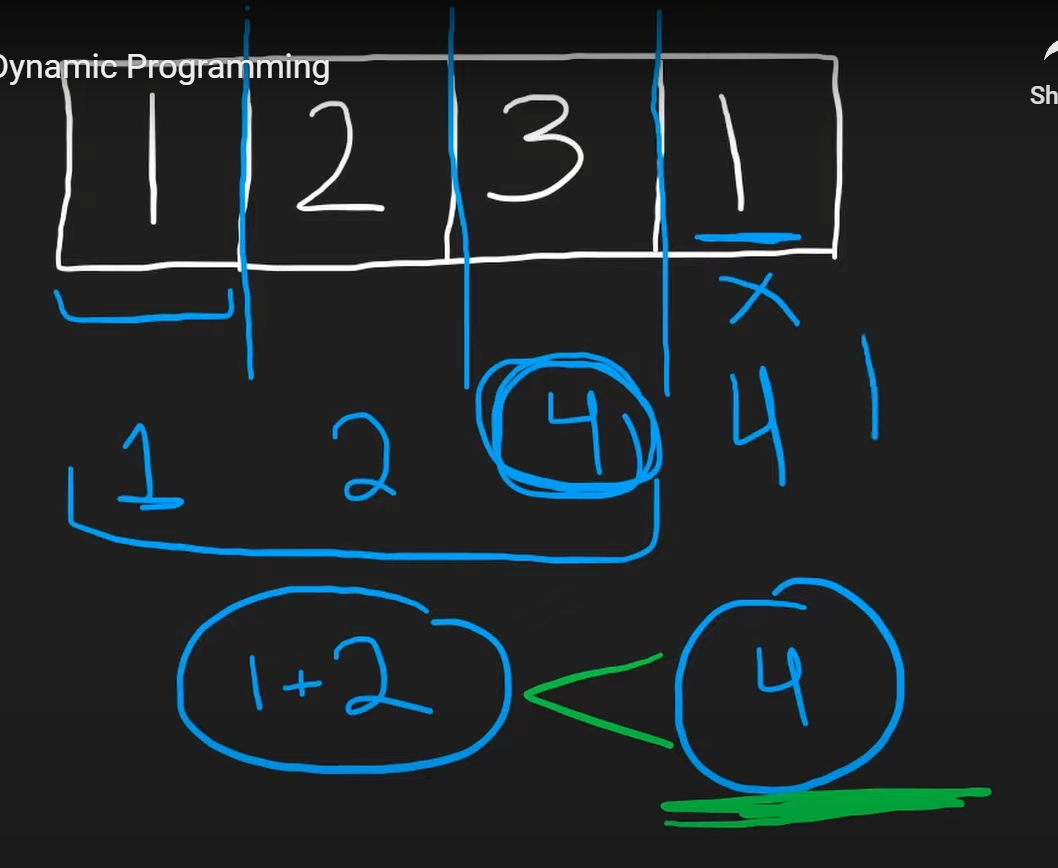 Dynamic Programming
Sh
1 2 3 1
x
1 2 4 4 1
1+2 < 4